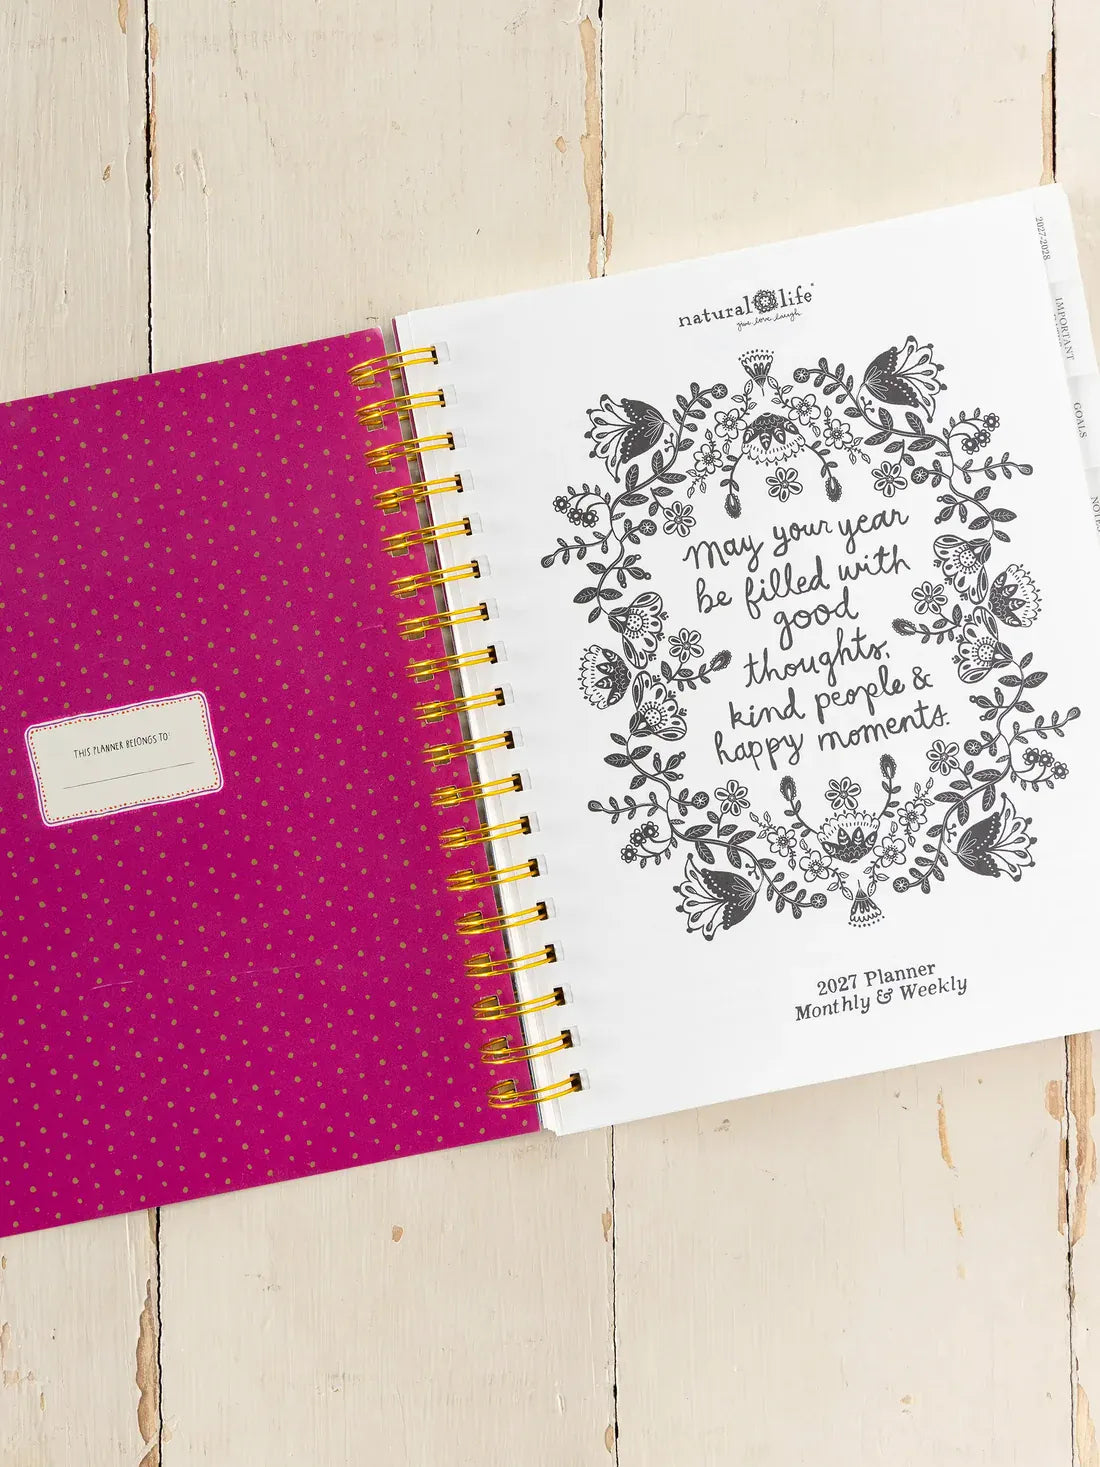 THIS PLANNER BELONGS TO:
natural life
give love laugh
May your year
be filled with
good
thoughts,
kind people &
happy moments.
2027 Planner
Monthly & Weekly
2027-2028
IMPORTANT
GOALS
NOTES